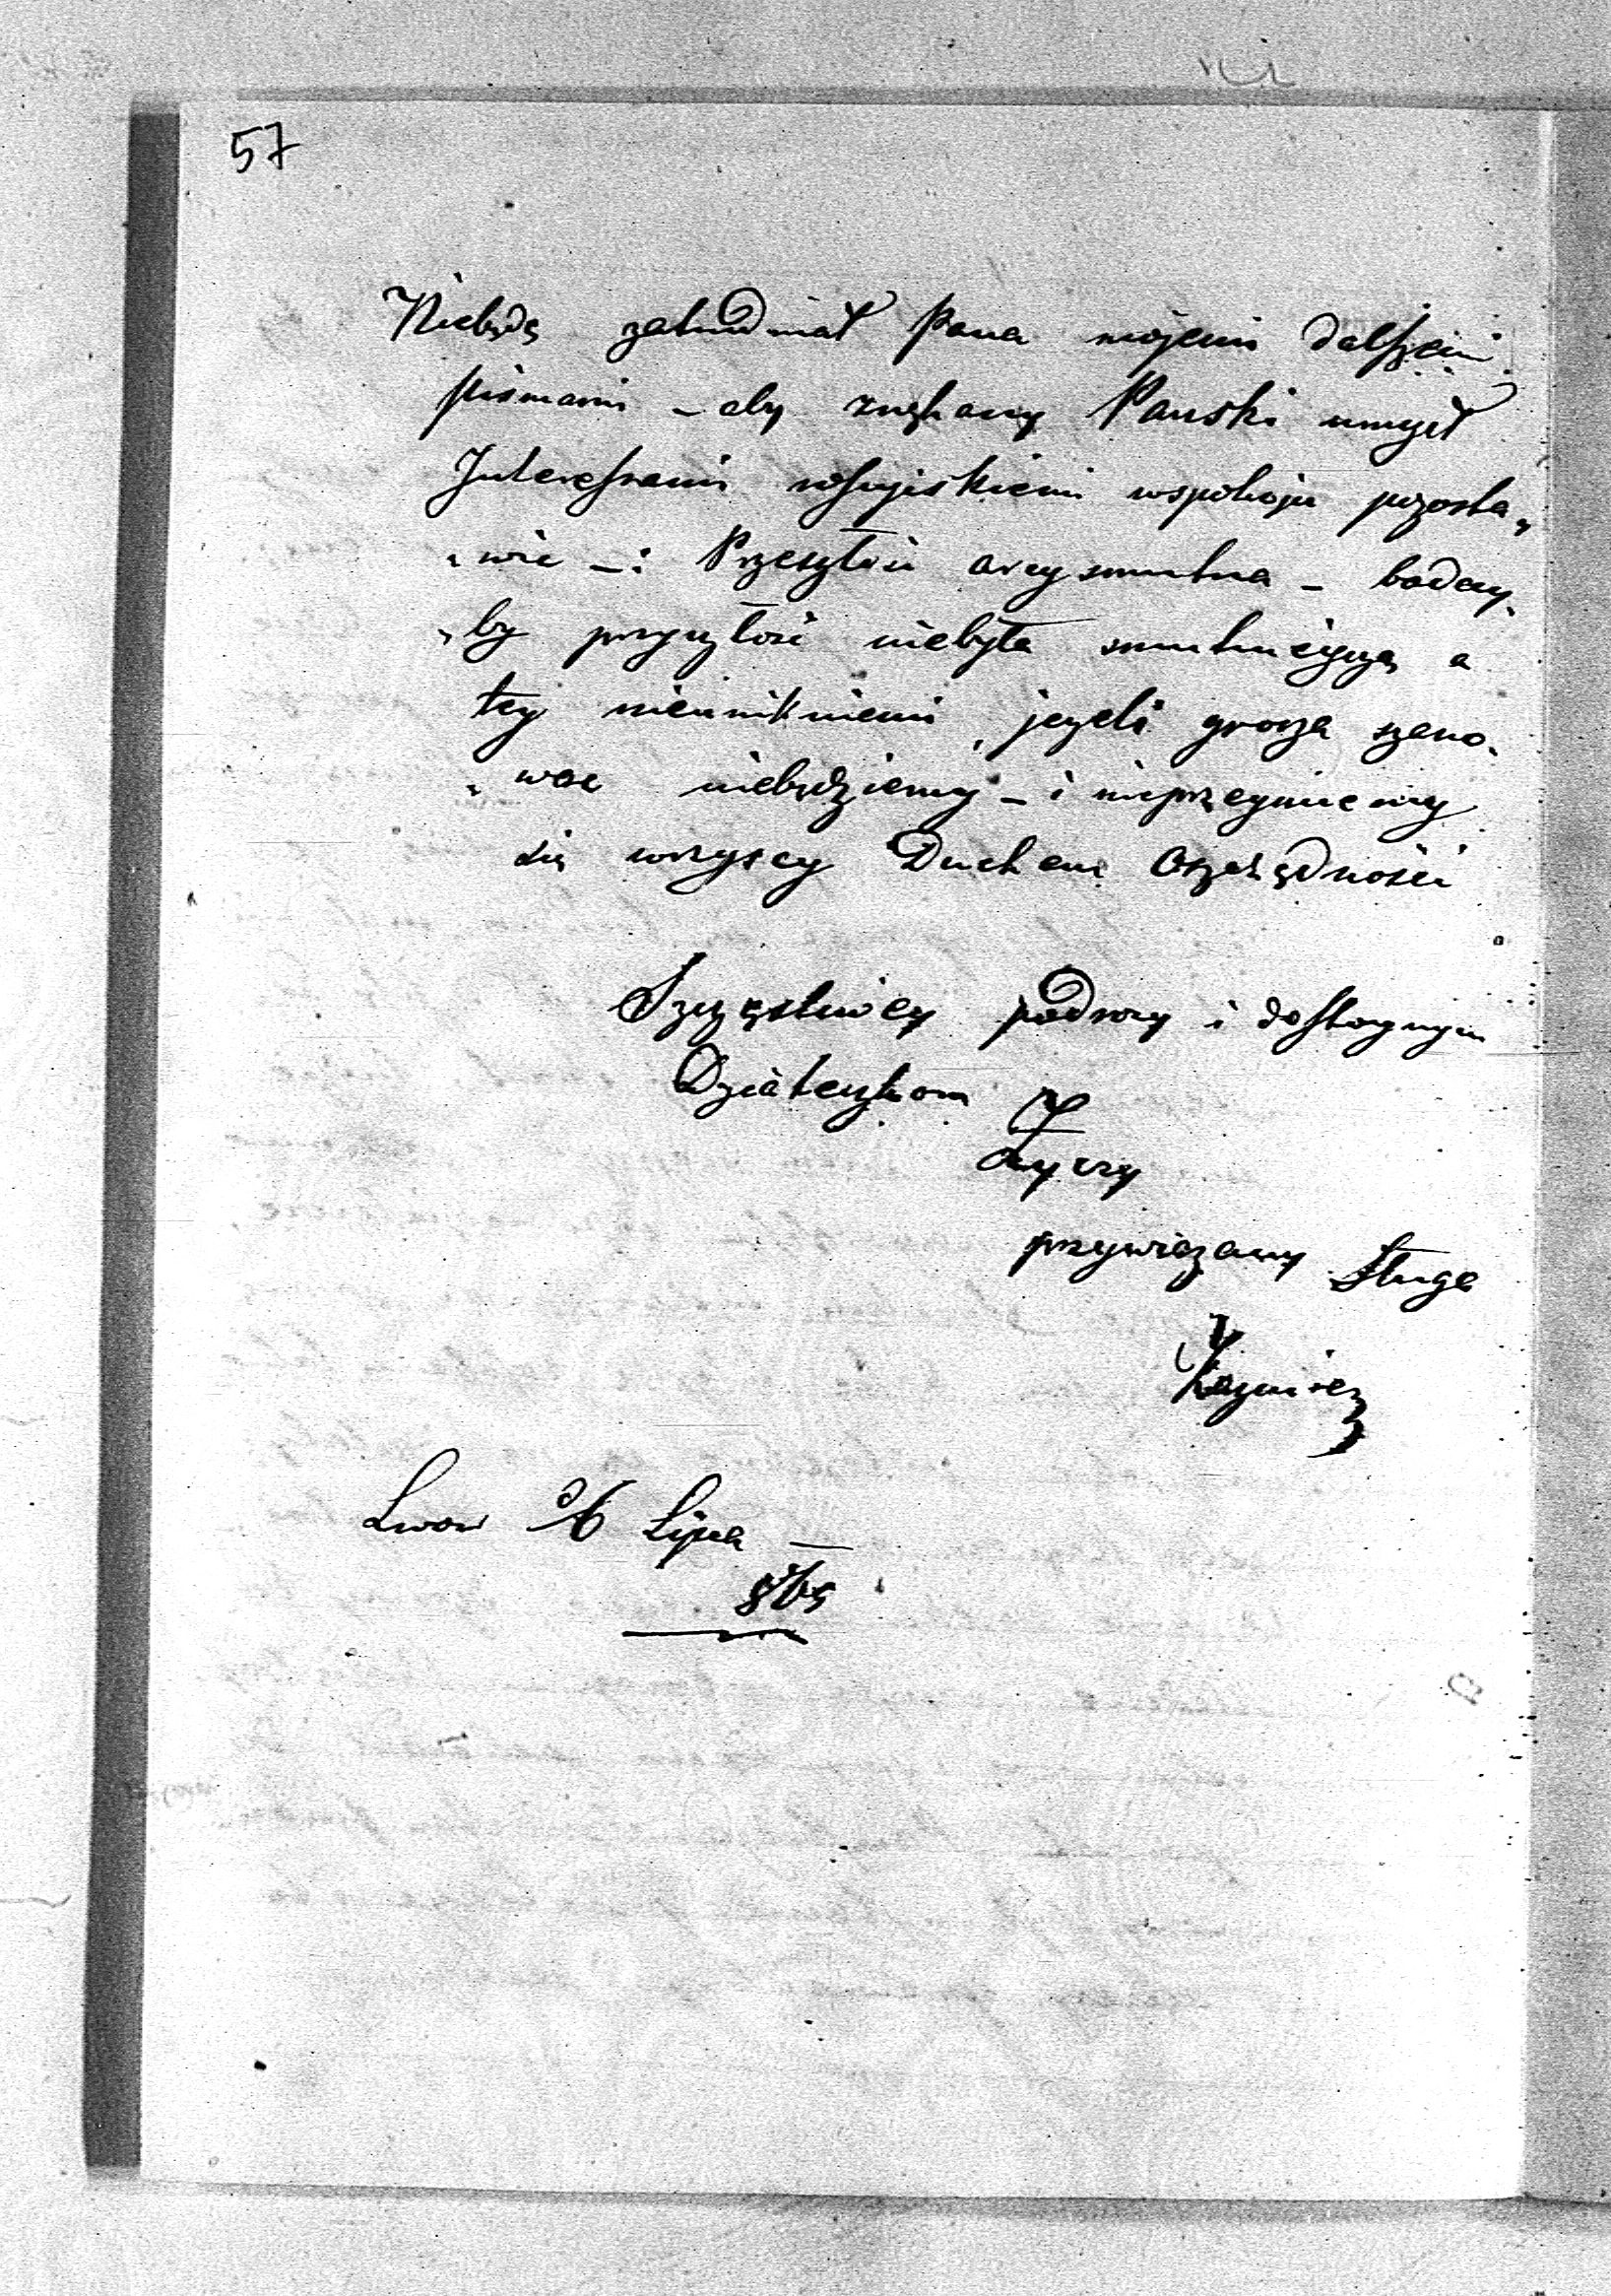 57
Niebędę zatrudniał Pana mojemi dalszemi
pismami – aby znękany Pański umysł
Interessami rossyiskiemi wspokoju pozosta„
„wić –: Przeszłość arcysmutna – boday„
„by przyszłość niebyła smutnieyszą a
tey nieunikniemi, jeżeli grosza szano„
„wać niebędziemy – i nieprzeymiemy
się wszyscy Duchem Oszczędności
Szczęśliwey podroży i dostoynym
Dziateczkom
Życzy
przywiązany Sługa
Kazmierz
Lwow Lipca